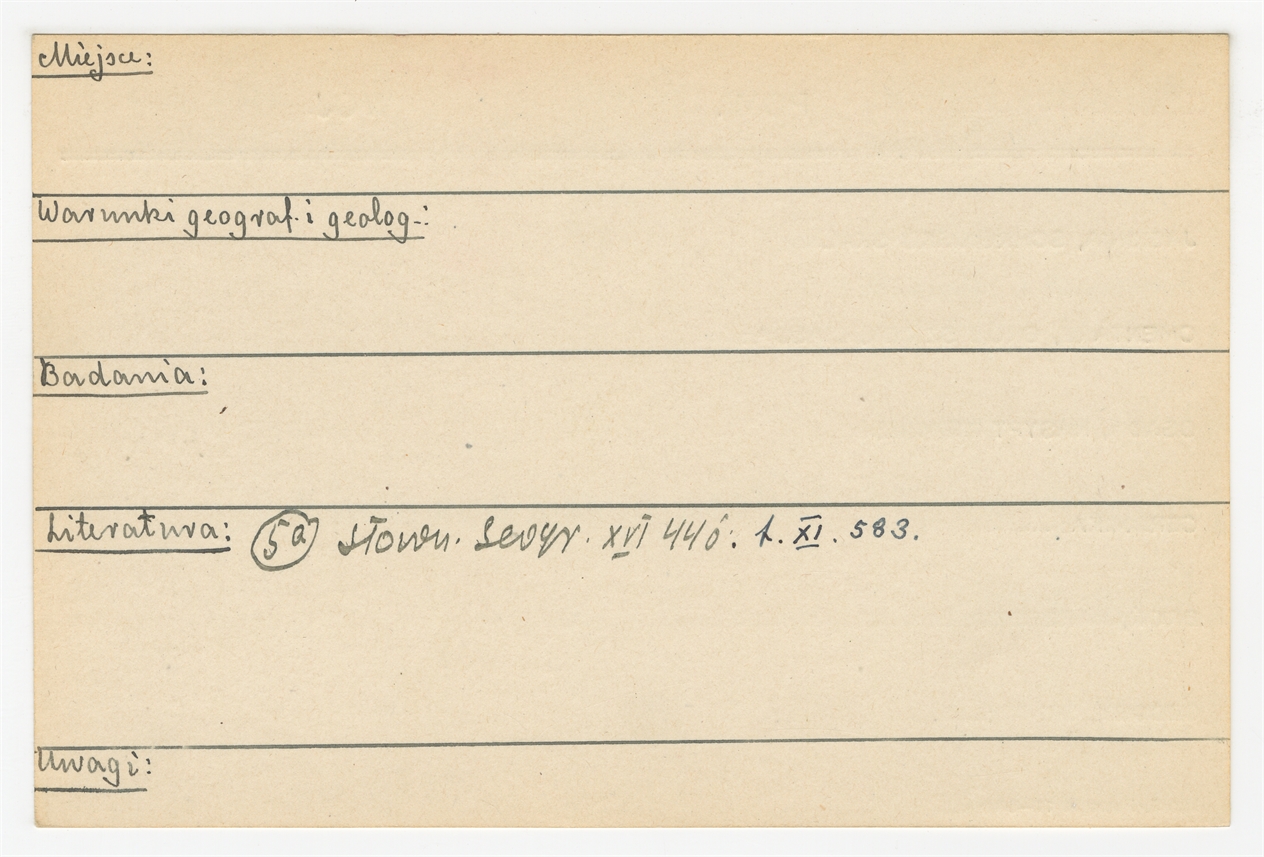 Miejsce:
Warunki geograf. i geolog.:
Badania:
Literatura: 5a Słown. Geogr. XVI 446. t. XI. 583.
Uwagi: